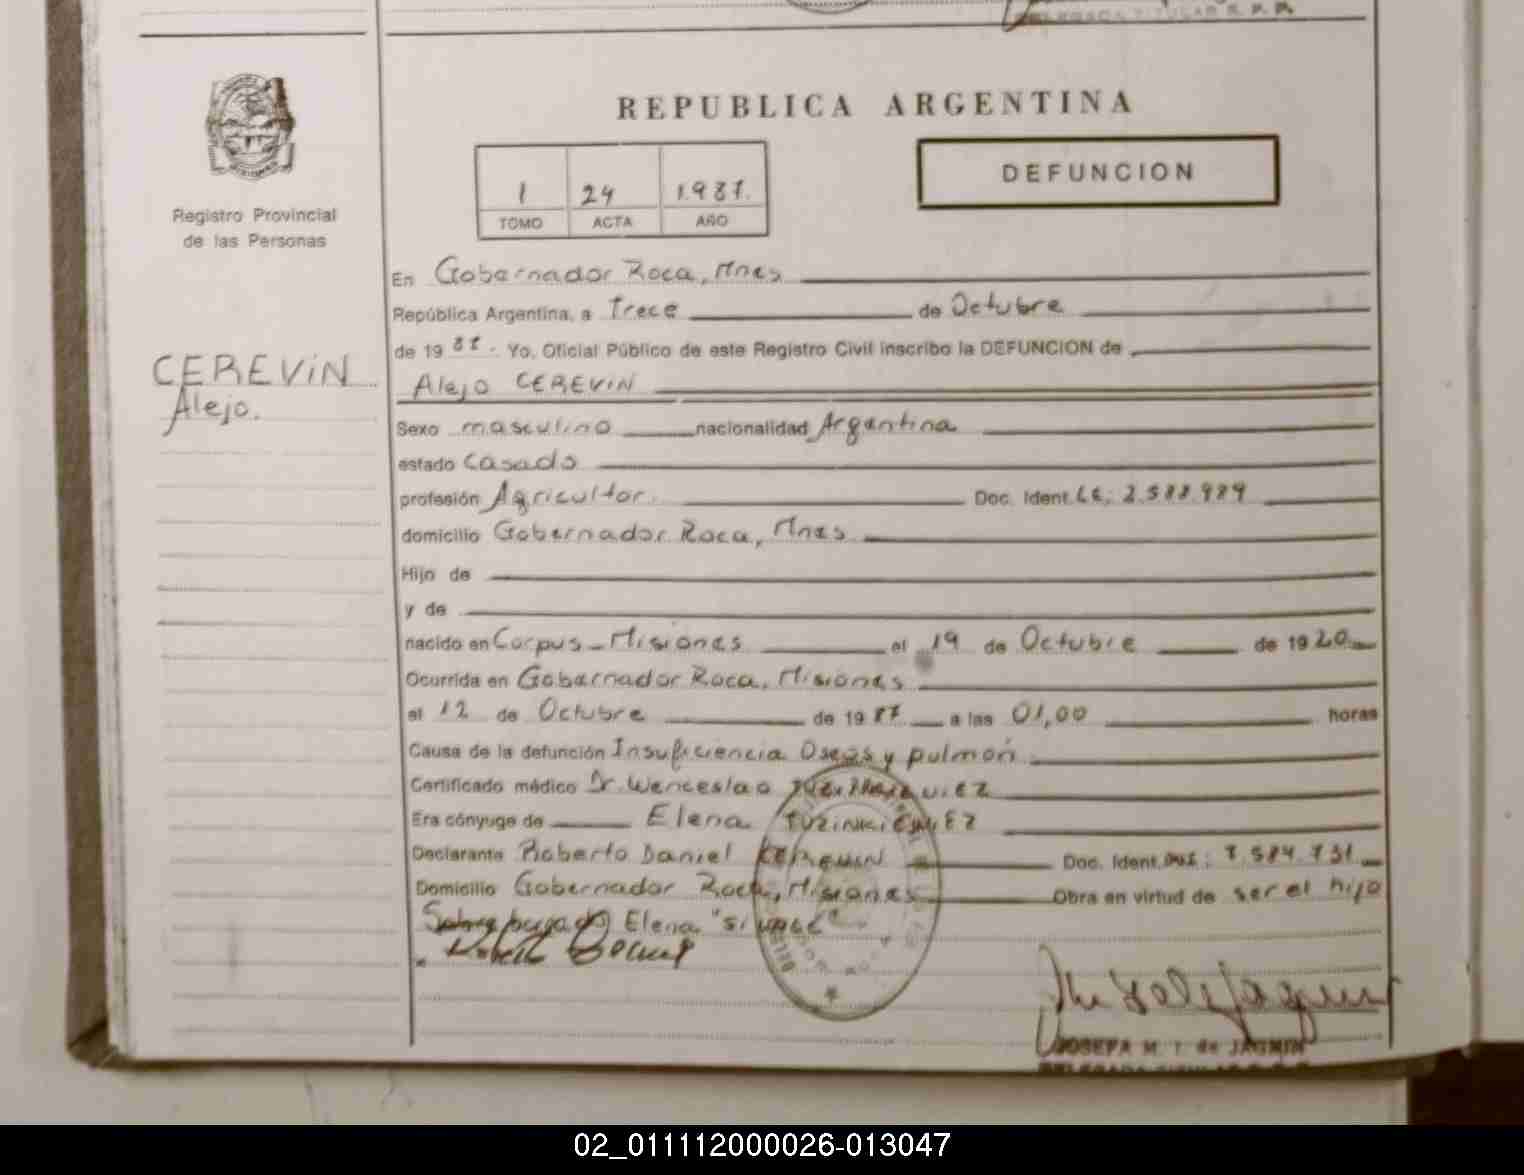 DELEGADA TITULAR R. P. P.
REPUBLICA ARGENTINA
DEFUNCION
1 24 1.987.
TOMO ACTA AÑO
Registro Provincial
de las Personas
CEREViN
Alejo.
En Gobernador Roca, Mnes
República Argentina, a Trece de Octubre
de 19 87. Yo, Oficial Público de este Registro Civil inscribo la DEFUNCION de
Alejo CEREViN
Sexo masculino nacionalidad Argentina
estado Casado
profesión Agricultor. Doc. Ident. LE: 2.588.989
domicilio Gobernador Roca, Mnes
Hijo de
y de
nacido en Corpus - Misiones el 19 de Octubre de 1920
Ocurrida en Gobernador Roca, Misiones
el 12 de Octubre de 1987 a las 01,00 horas
Causa de la defunción Insuficiencia Oseas y pulmón
Certificado médico Dr. Wenceslao
Era cónyuge de Elena
Declarante Roberto Daniel CEREVIN Doc. Ident. DNI: 7.584.731
Domicilio Gobernador Roca, Misiones Obra en virtud de ser el hijo
Sobre borrado Elena "Si vale"
JOSEFA M. T. de JAGMIN
DELEGADA TITULAR R. P. P.
02_011112000026-013047